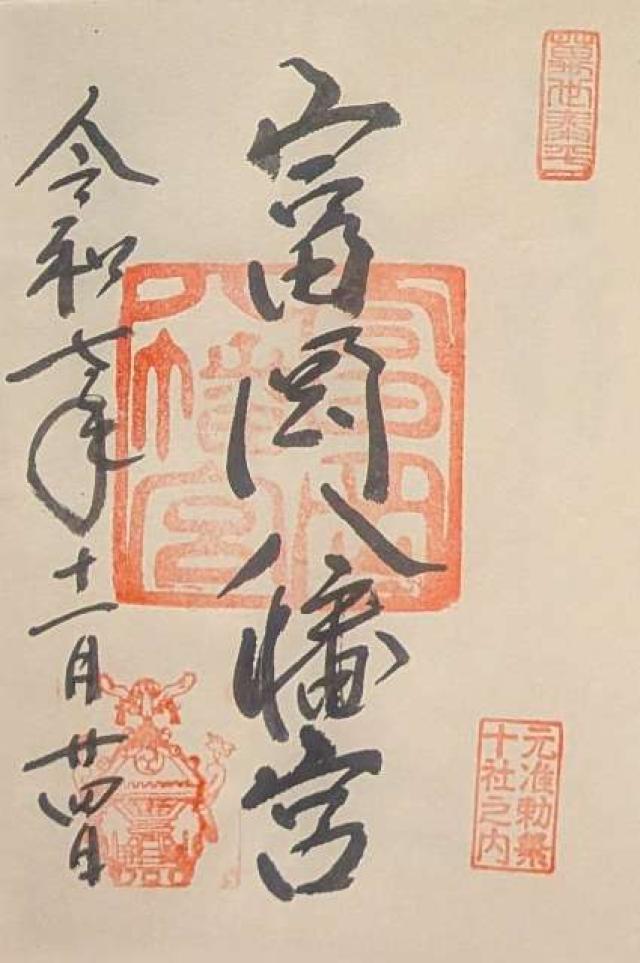 萬世泰平
元准勅祭
十社之内
富岡八幡宮
富岡
八幡宮
令和七年十一月廿四日